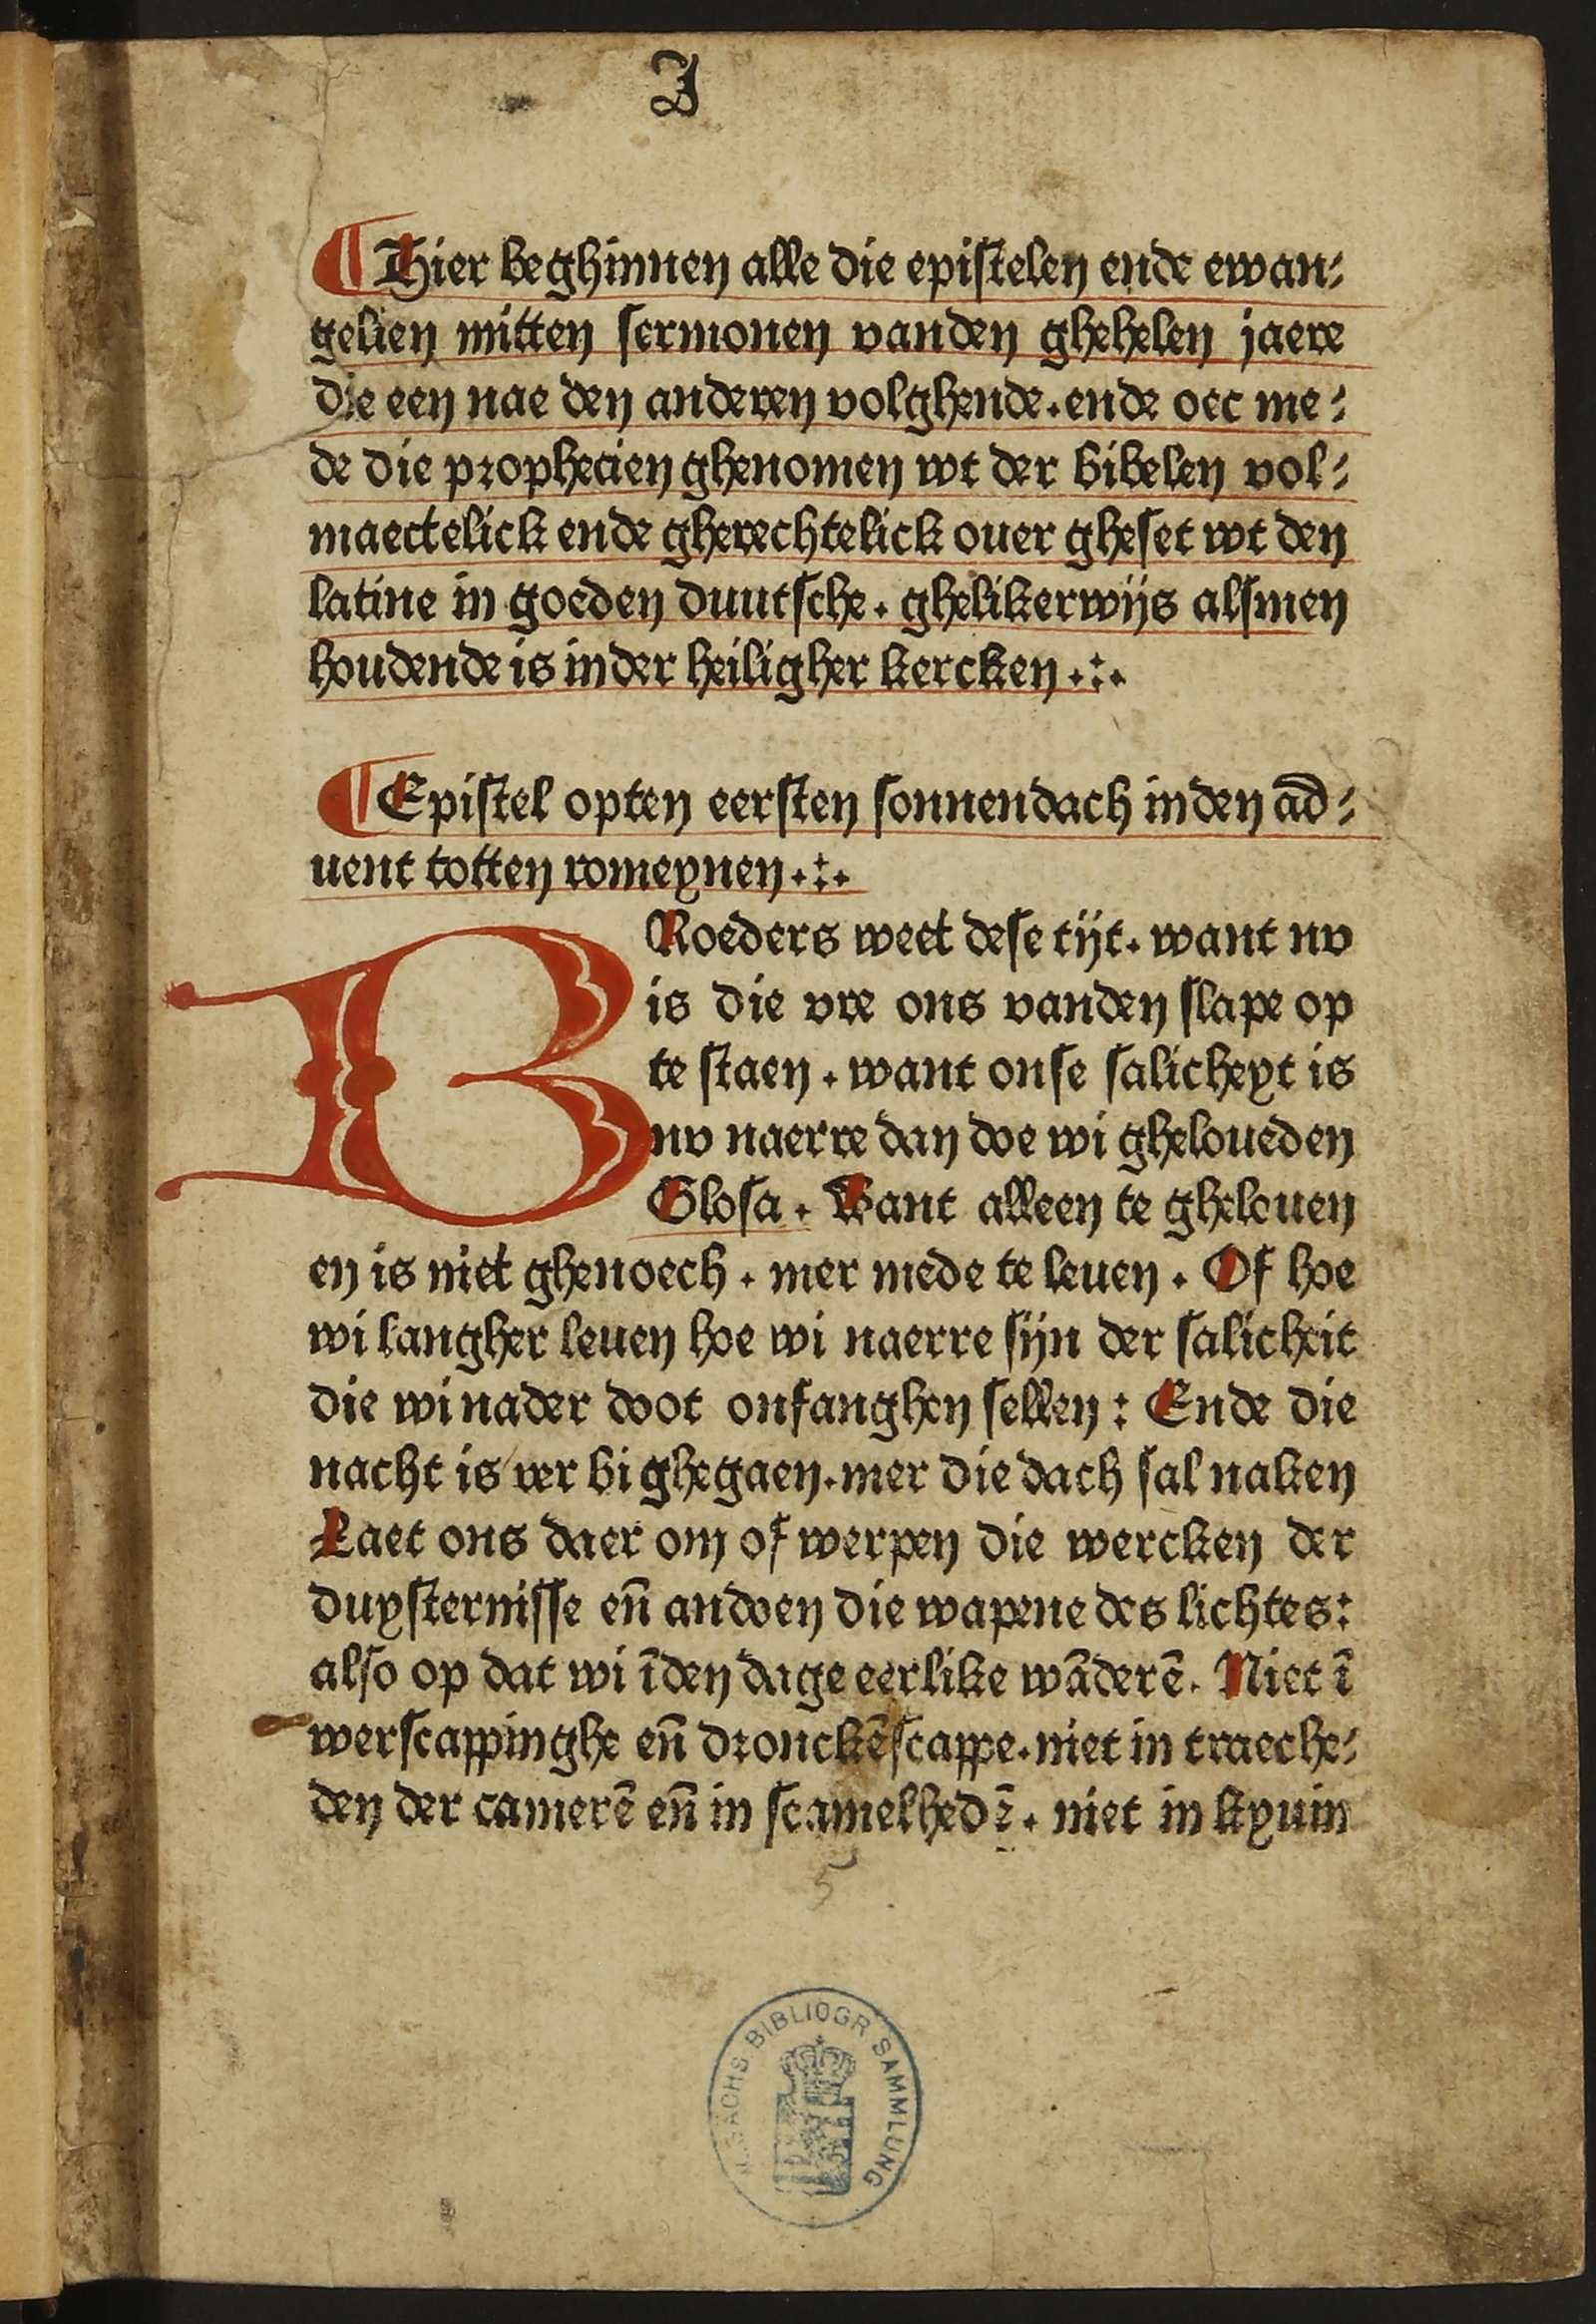 J
¶ Hier beghinnen alle die epistelen ende ewan⸗
gelien mitten sermonen vanden ghehelen jaere
die een nae den anderen volghende. ende oec me⸗
de die prophecien ghenomen wt der bibelen vol⸗
maectelick ende gherechtelick ouer gheset wt den
latine in goeden duutsche. ghelikerwijs alsmen
houdende is inder heiligher kercken .:.
¶ Epistel opten eersten sonnendach inden ad⸗
uent totten romeynen .:.
BRoeders weet dese tijt. want nv
is die vre ons vanden slape op
te staen. want onse salicheyt is
nv naerre dan doe wi gheloueden
Glosa. Want alleen te ghelouen
en is niet ghenoech. mer mede te leuen. Of hoe
wi langher leuen hoe wi naerre sijn der salicheit
die wi nader doot onfanghen sellen: Ende die
nacht is ver bi ghegaen. mer die dach sal naken
Laet ons daer om of werpen die wercken der
duysternisse en̄ andoen die wapene des lichtes:
also op dat wi īden dage eerlike wāderē. Niet ī
werscappinghe en̄ dronckēscappe. niet in traeche⸗
den der camerē en̄ in scamelhedē. niet in kyuin
5
SÄCHS BIBLIOGR SAMMLUNG